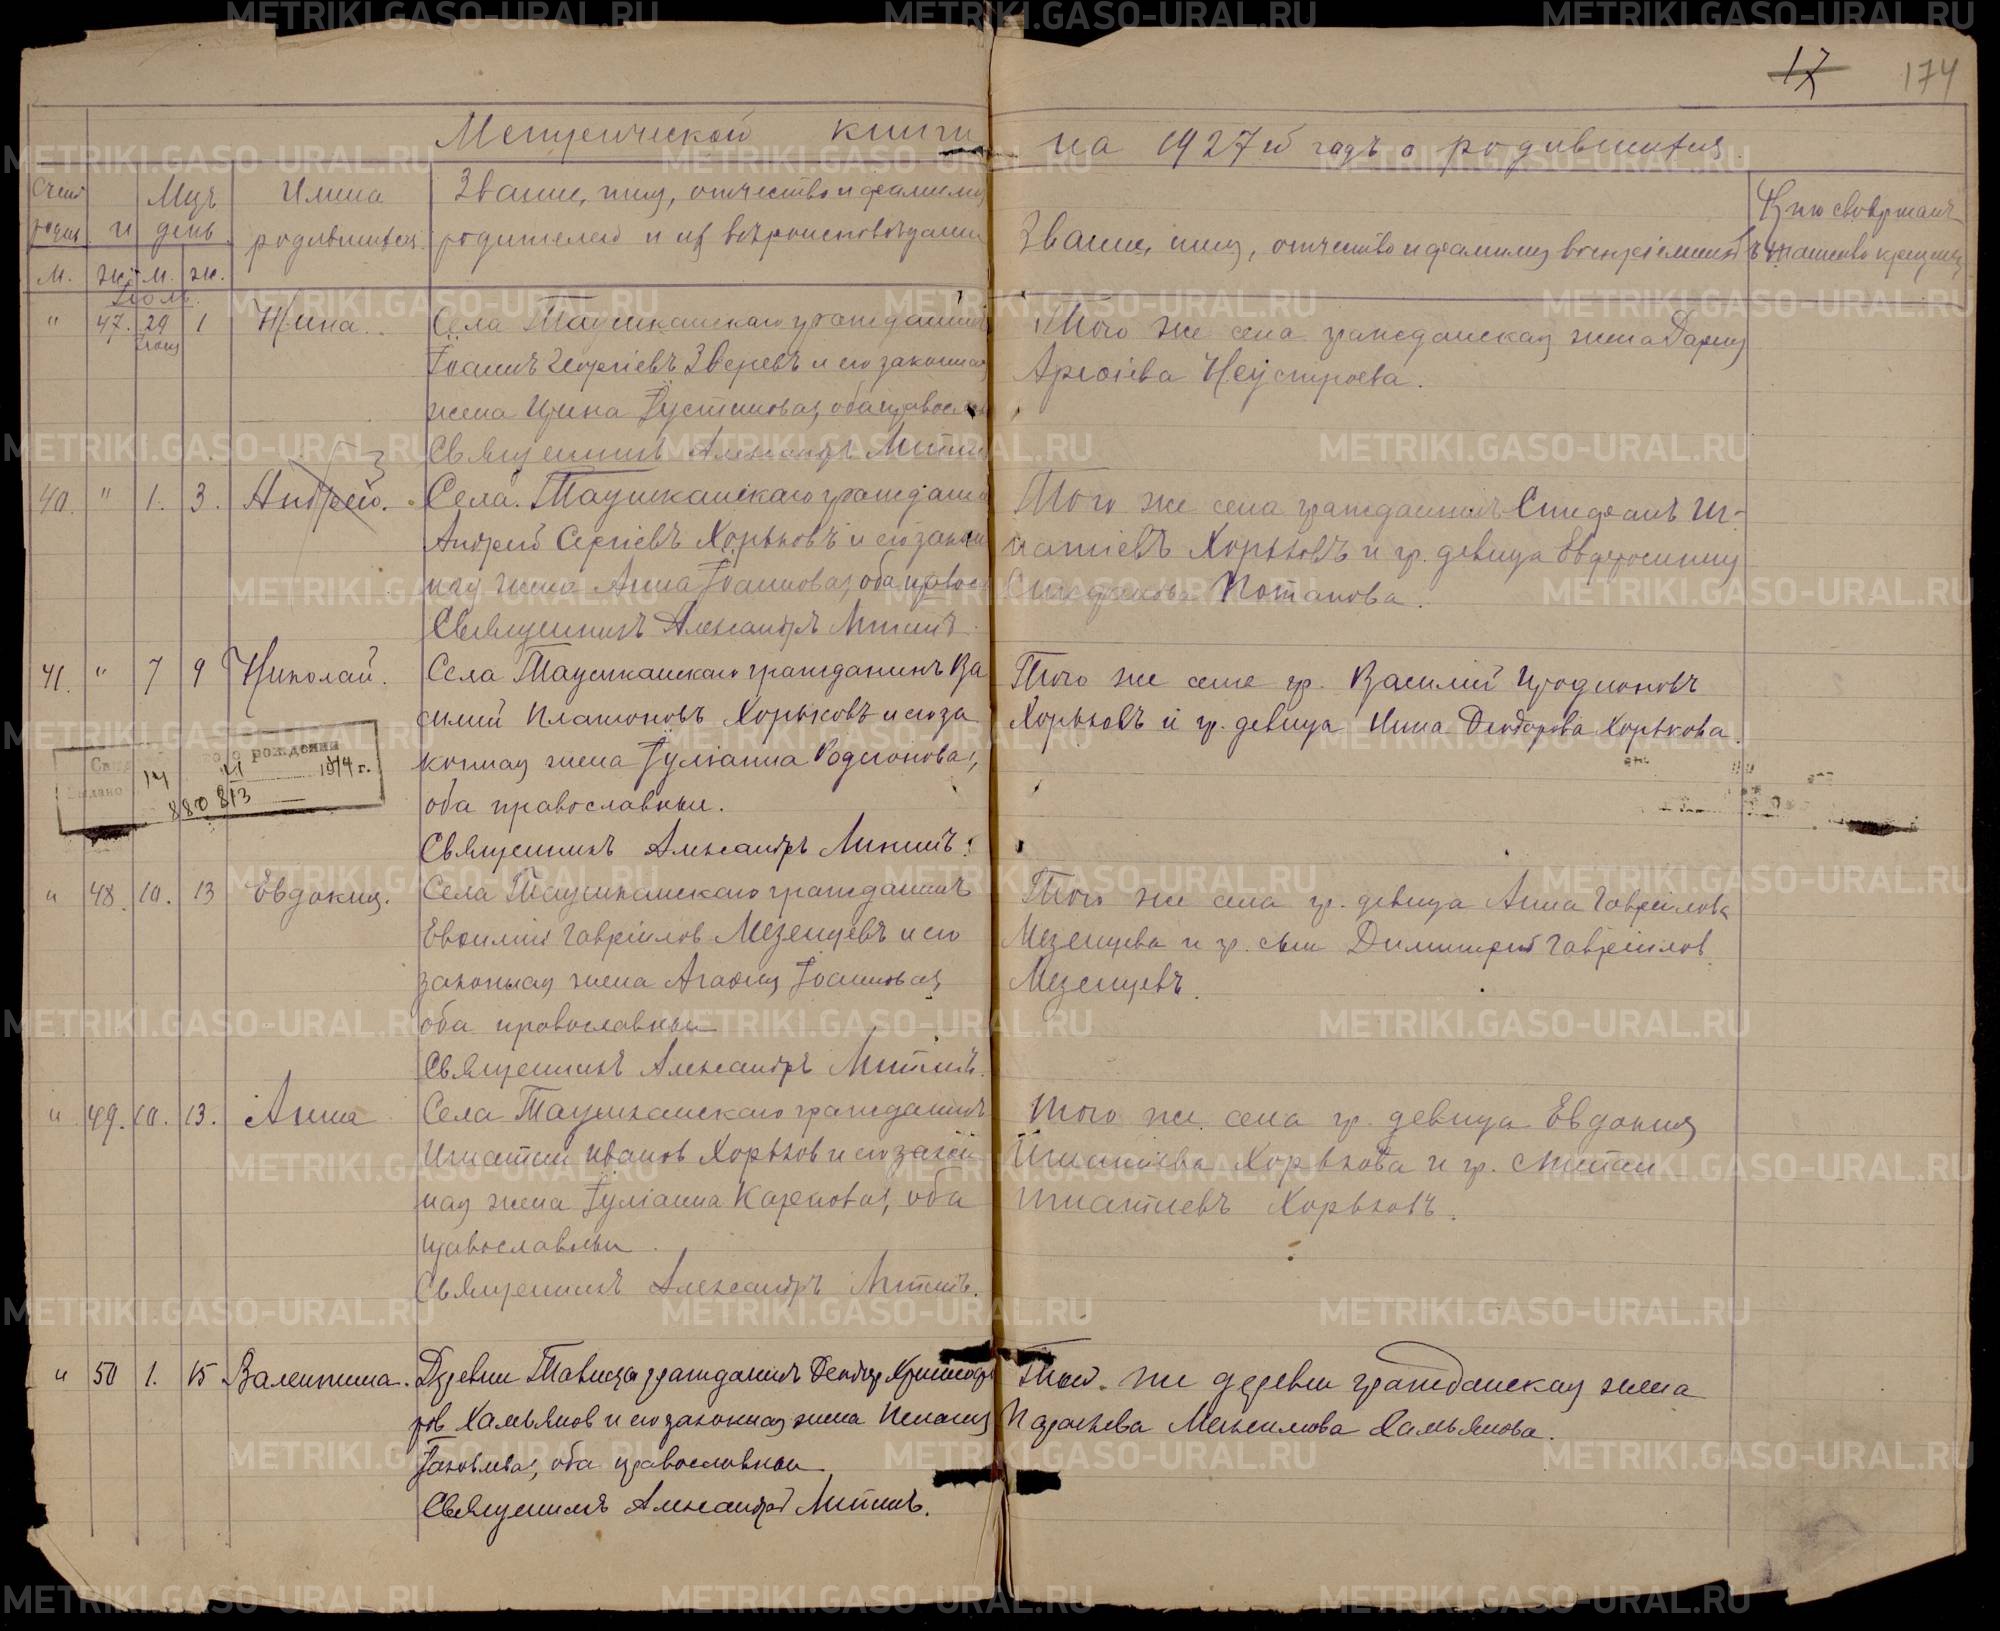 17 174
Метрической книги на 1927й годъ о родившихся.
Счетъ родив. Мцъ и день Имена родившихся
Званіе, имя, отчество и фамилия
родителей и их вѣроисповѣдания
Званіе, имя, отчество и фамилия воспріемниковъ
Кто совершалъ таинство крещения
м. ж. м. ж.
Іюль
" 47. 29 1 Нина.
Села Таушканскаго гражданинъ
Іоаннъ Георгіевъ Зверевъ и его законная
жена Ирина Іустиновая, оба правосл
Священникъ Александръ Митинъ
Того же села гражданская жена Дария
Арсеніева Неустроева.
40. " 1. 3. Андрей.
Села Таушканскаго граждани
Андрей Сергіевъ Хорьковъ и его закон
ная жена Анна Іоанновая, оба правосл
Священникъ Александръ Митинъ
Того же села гражданинъ Стефанъ Иг-
натіевъ Хорьковъ и гр. девица Евфросиния
Стефанова Потапова.
41. " 7 9 Николай.
Села Таушканскаго гражданинъ Ва
силий Платоновъ Хорьковъ и его за
конная жена Іуліанна Родионова,
оба православныи.
Священникъ Александръ Митинъ.
Того же села гр. Василий Иродионовъ
Хорьковъ и гр. девица Нина Феодорова Хорькова.
о рождении
14 11 1974 г.
880813
" 48. 10. 13 Евдокия.
Села Таушканскаго гражданинъ
Гавріилов Мезенцевъ и его
законная жена Агафия Іоанновая,
оба православныи
Священникъ Александръ Митинъ.
Того же села гр. девица Анна Гавріилова
Мезенцева и гр. сын Димитрий Гавріилов
Мезенцевъ.
" 49. 10. 13. Анна
Села Таушканскаго гражданинъ
Игнатий Иванов Хорьков и его закон
ная жена Іуліанна Карповая, оба
православныи.
Священникъ Александръ Митинъ.
Того же села гр. девица Евдокия
Игнатіева Хорькова и гр.
Игнатиевъ Хорьковъ.
" 50 1. 15 Валентина.
Деревни гражданинъ Феодор Христофо
ров Хамьянов и его законная жена Пелагия
Іаковлева, оба православныи
Священникъ Александръ Митинъ.
Той же деревни гражданская жена
Параскева Максимова Хамьянова.
METRIKI.GASO-URAL.RU